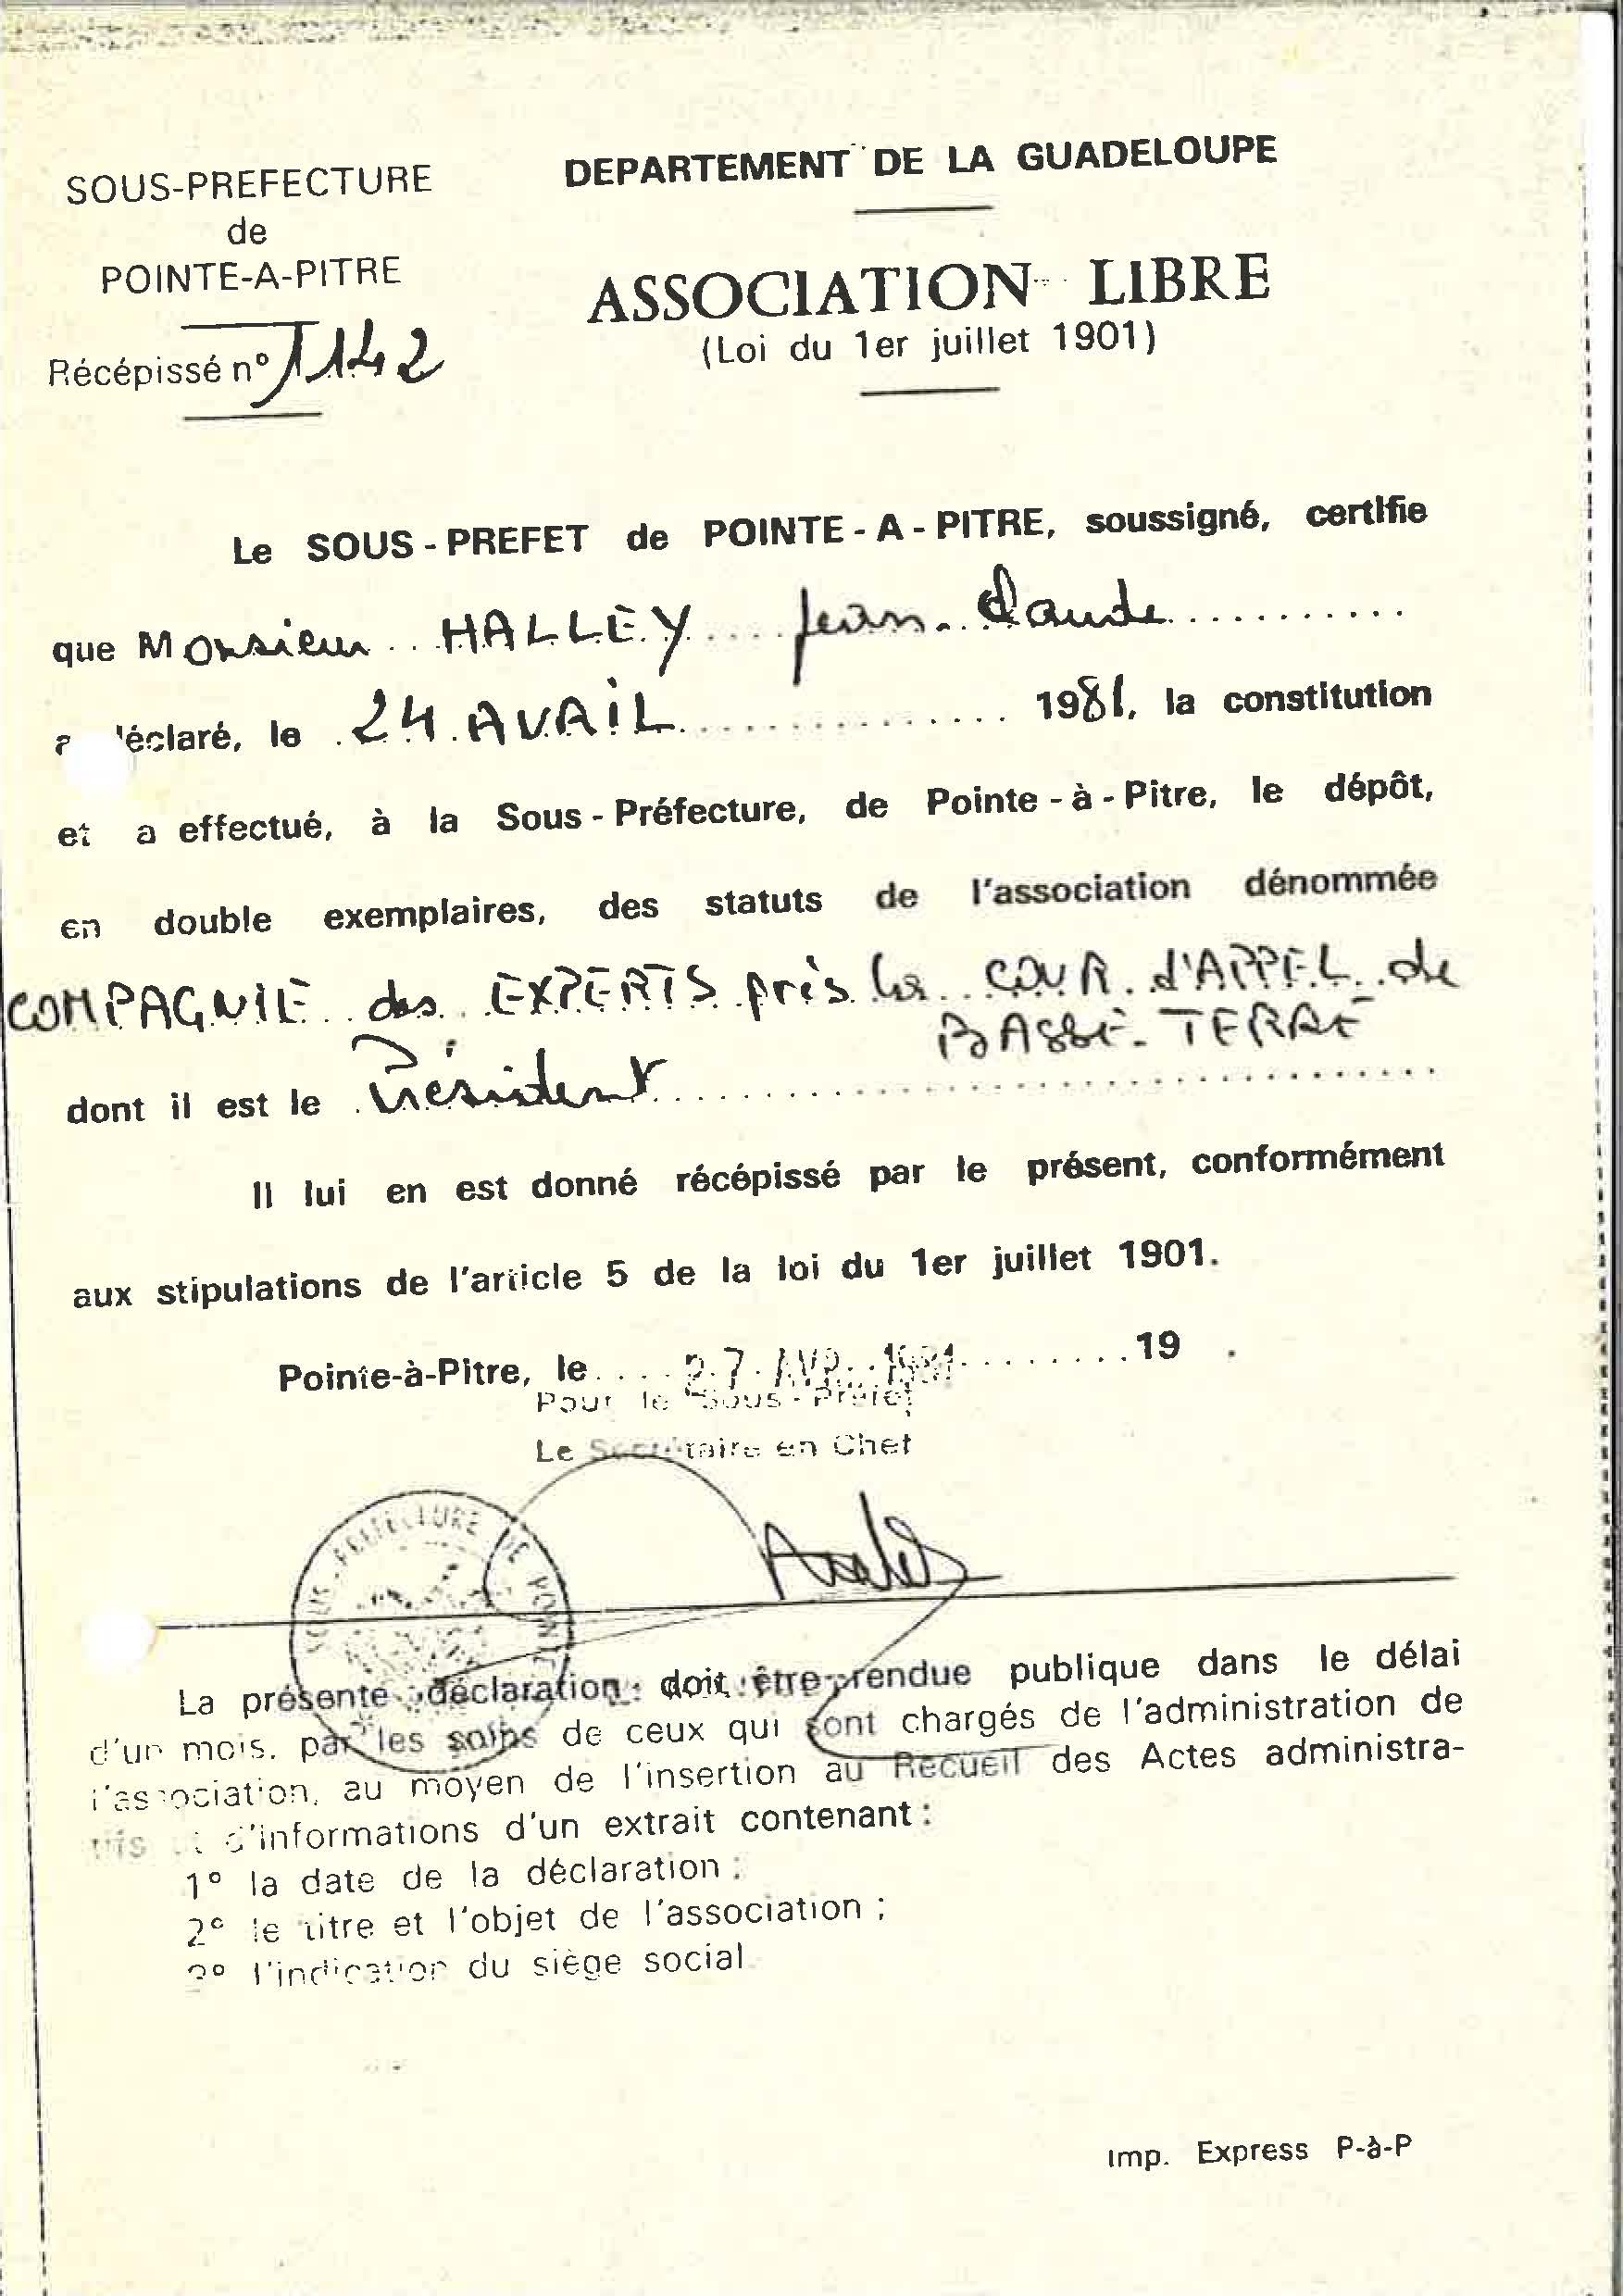 SOUS-PREFECTURE
de
POINTE-A-PITRE
Récépissé n° 1142
DEPARTEMENT DE LA GUADELOUPE
ASSOCIATION LIBRE
(Loi du 1er juillet 1901)
Le SOUS-PREFET de POINTE-A-PITRE, soussigné, certifie
que Monsieur HALLEY Jean-Claude
a déclaré, le 24 AVRIL 1981, la constitution
et a effectué, à la Sous-Préfecture, de Pointe-à-Pitre, le dépôt,
en double exemplaires, des statuts de l'association dénommée
COMPAGNIE des EXPERTS près la COUR d'APPEL de
BASSE-TERRE
dont il est le Président
Il lui en est donné récépissé par le présent, conformément
aux stipulations de l'article 5 de la loi du 1er juillet 1901.
Pointe-à-Pitre, le 27 AVR. 1981 19 .
Pour le Sous-Préfet
Le Secrétaire en Chef
SOUS-PREFECTURE DE POINTE
La présente déclaration doit être rendue publique dans le délai
d'un mois, par les soins de ceux qui sont chargés de l'administration de
l'association, au moyen de l'insertion au Recueil des Actes administra-
tifs et d'informations d'un extrait contenant :
1° la date de la déclaration ;
2° le titre et l'objet de l'association ;
3° l'indication du siège social
Imp. Express P-à-P